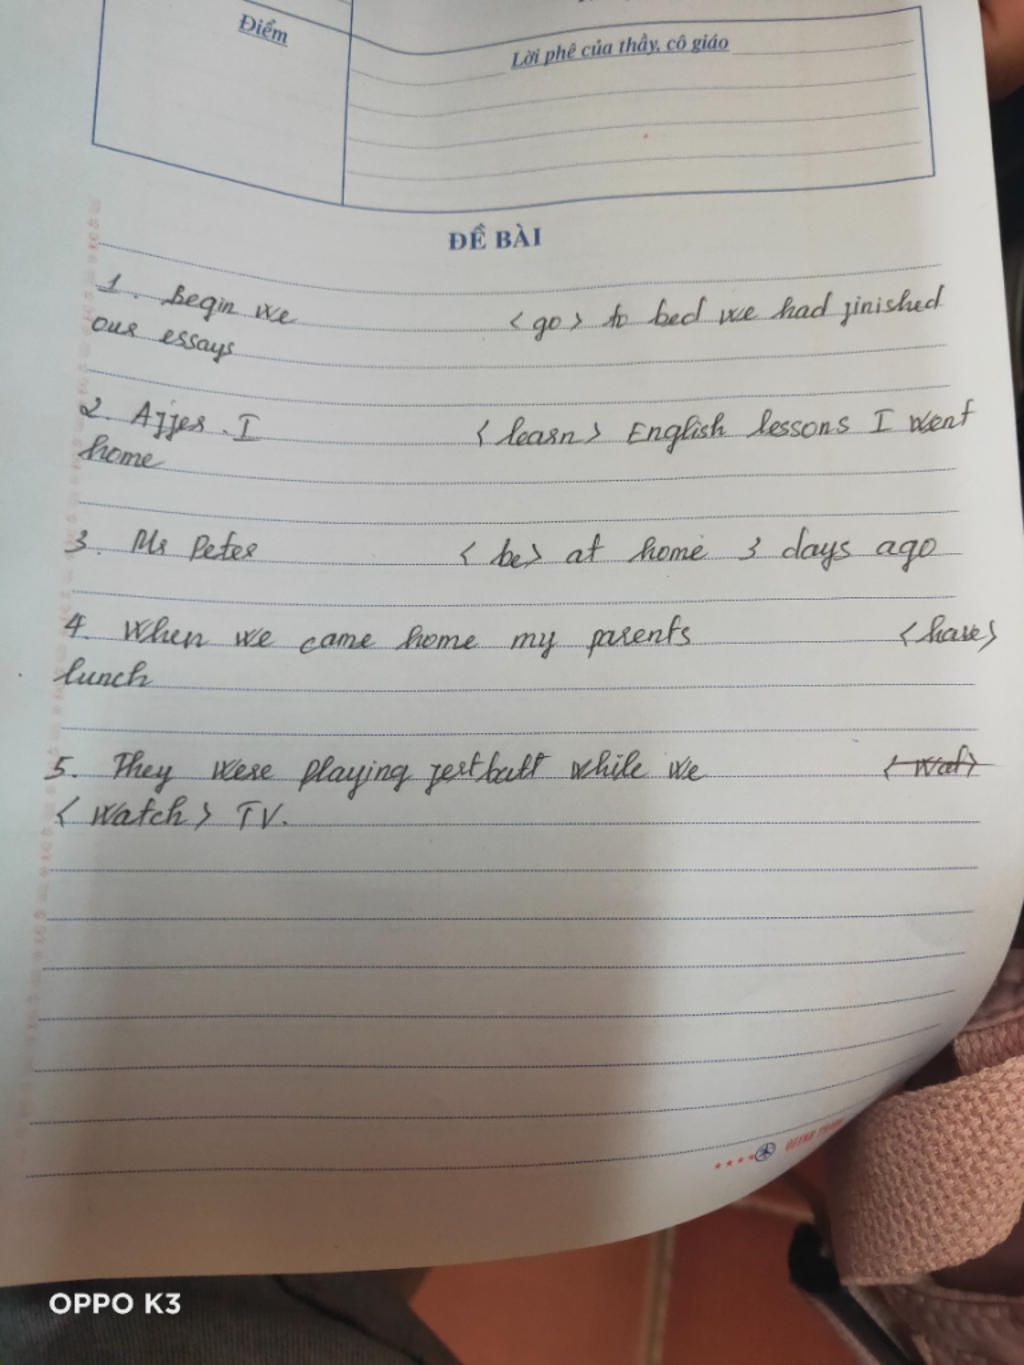 Điểm
Lời phê của thầy, cô giáo
ĐỀ BÀI
1. Begin we <go> to bed we had jinished
our essays
2. Ajjer. I <learn> English lessons I went
home
3. Mr Peter <be> at home 3 days ago
4. When we came home my parents <have>
lunch
5. They were playing jestball while we <wat>
<watch> TV.
OPPO K3